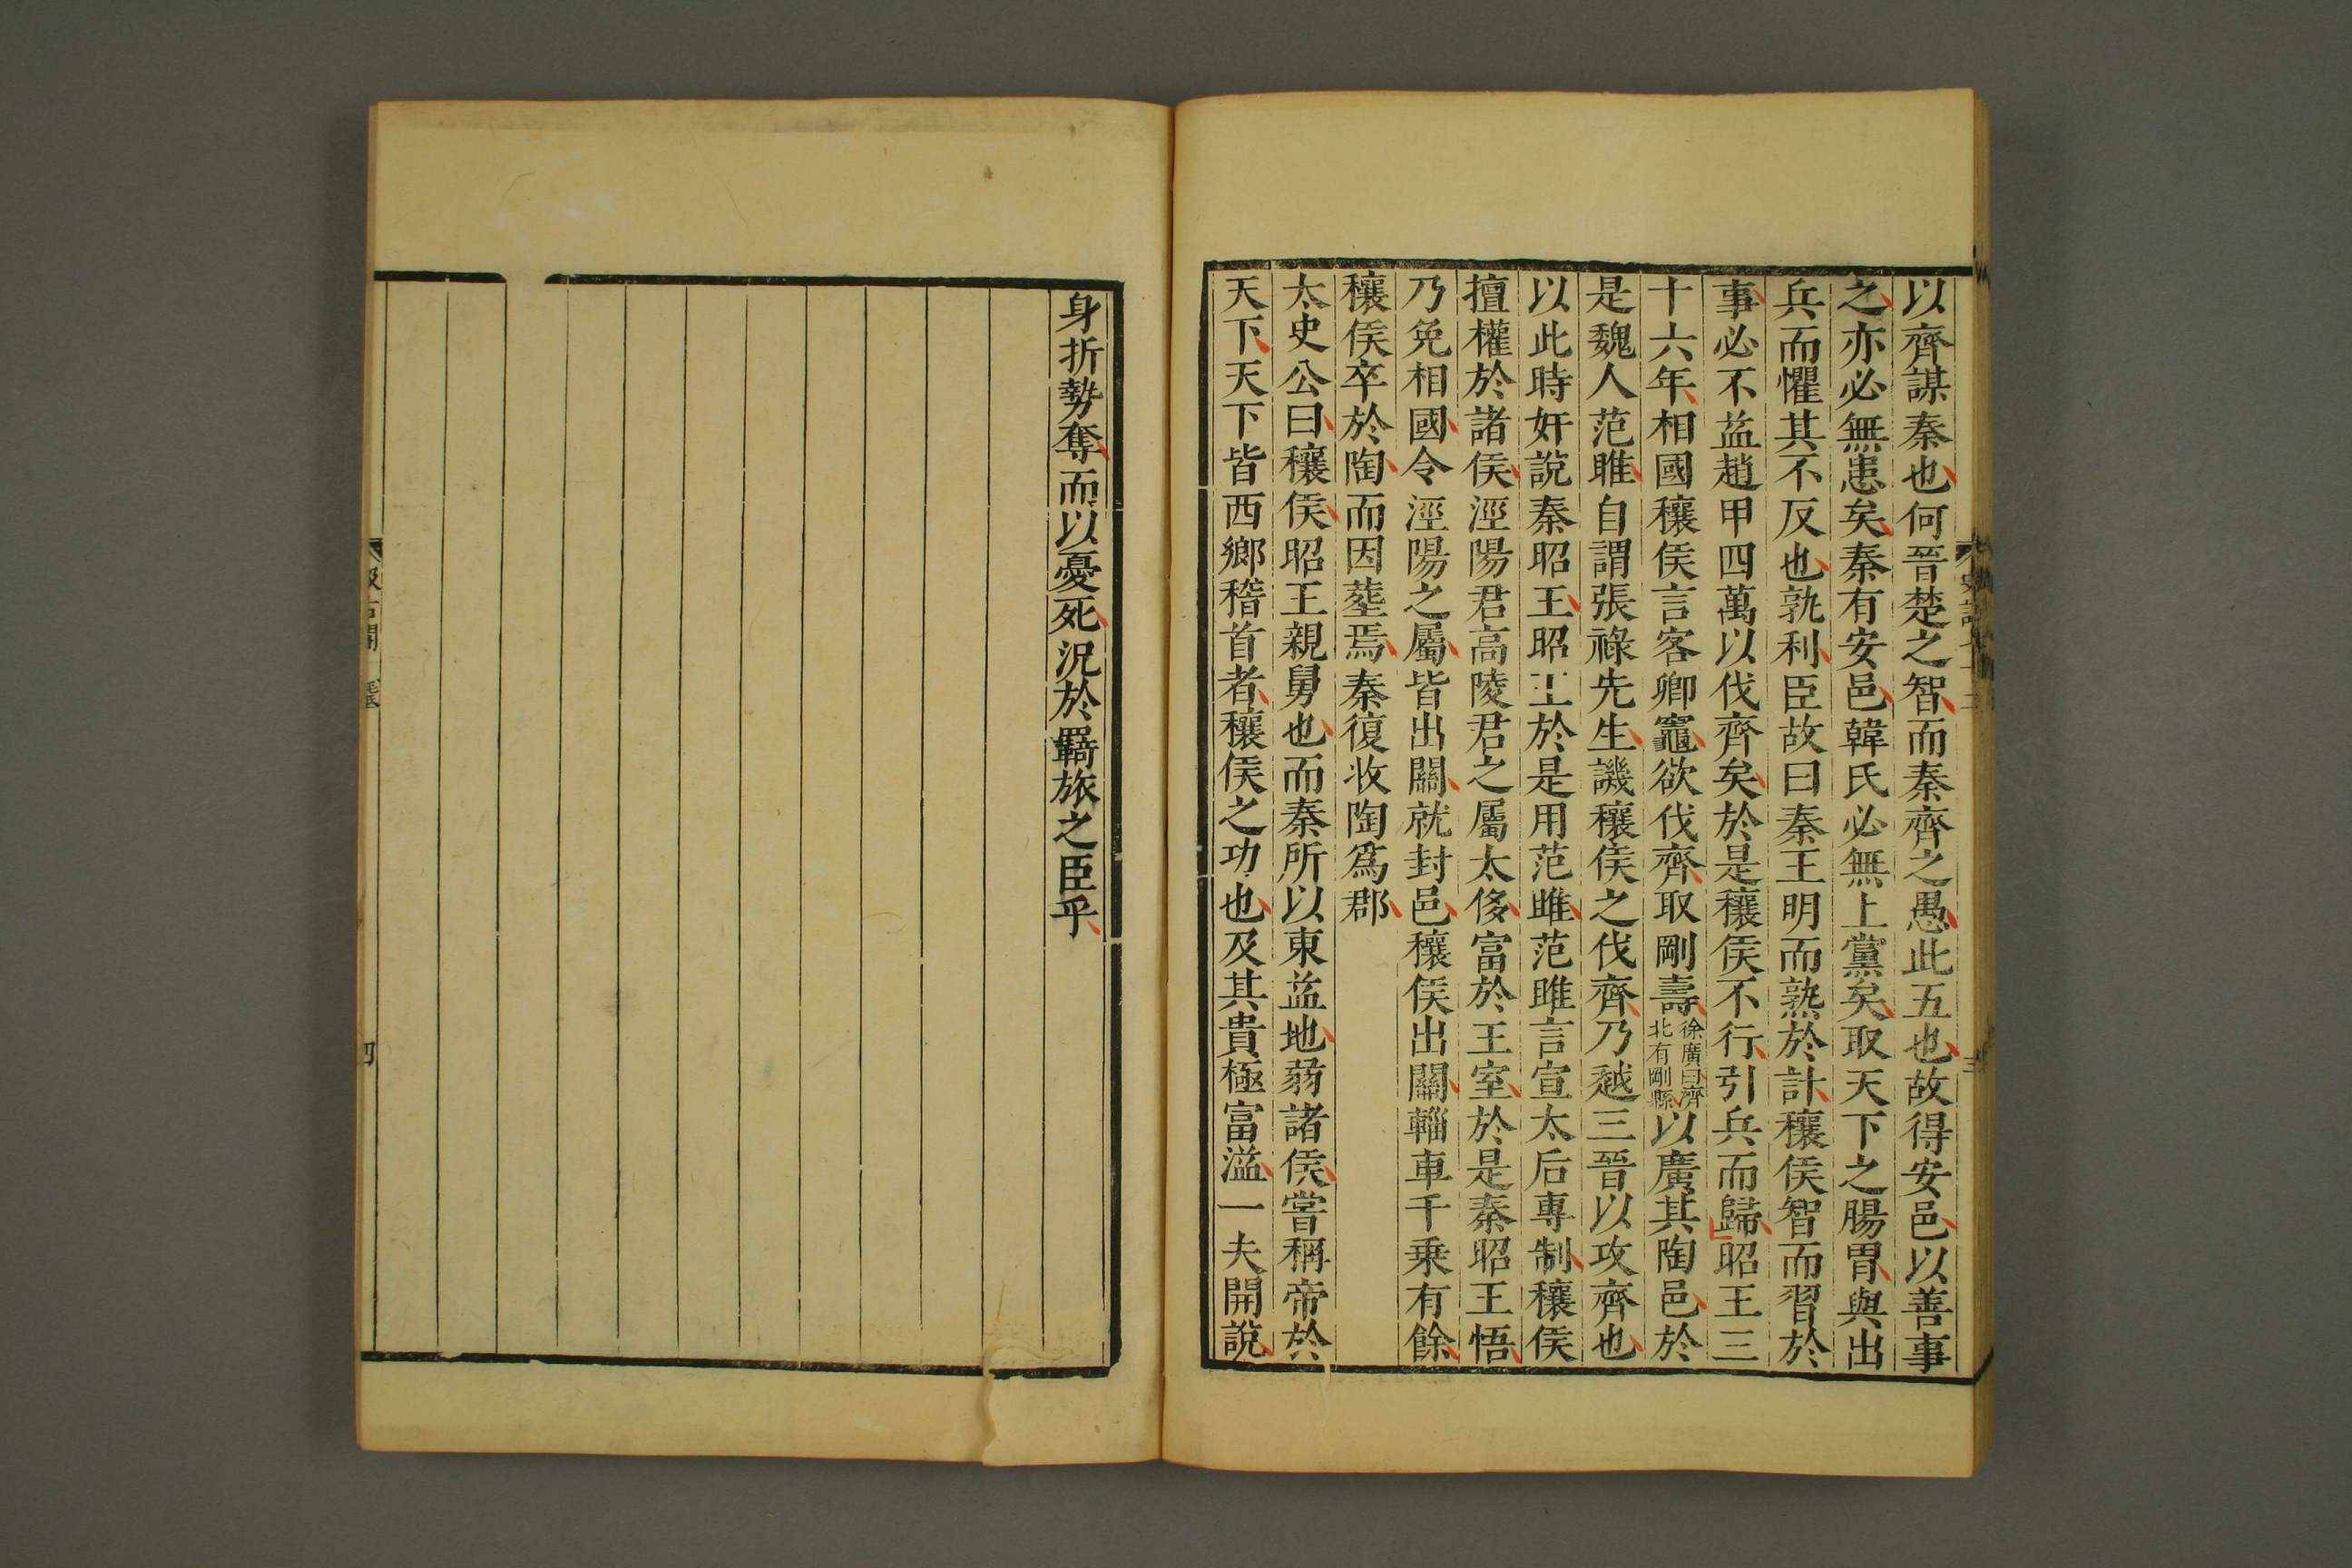 以齊謀秦也何晉楚之智而秦齊之愚此五也故得安邑以善事
之亦必無患矣秦有安邑韓氏必無上黨矣取天下之腸胃與出
兵而懼其不反也孰利臣故曰秦王明而熟於計穰侯智而習於
事必不益趙甲四萬以伐齊矣於是穰侯不行引兵而歸昭王三
十六年相國穰侯言客卿竈欲伐齊取剛壽徐廣曰濟北有剛縣以廣其陶邑於
是魏人范睢自謂張祿先生譏穰侯之伐齊乃越三晉以攻齊也
以此時奸說秦昭王昭王於是用范雎范雎言宣太后專制穰侯
擅權於諸侯涇陽君高陵君之屬太侈富於王室於是秦昭王悟
乃免相國令涇陽之屬皆出關就封邑穰侯出關輜車千乗有餘
穰侯卒於陶而因葬焉秦復收陶爲郡
太史公曰穰侯昭王親舅也而秦所以東益地弱諸侯嘗稱帝於
天下天下皆西鄉稽首者穰侯之功也及其貴極富溢一夫開說
身折勢奪而以憂死況於羈旅之臣乎